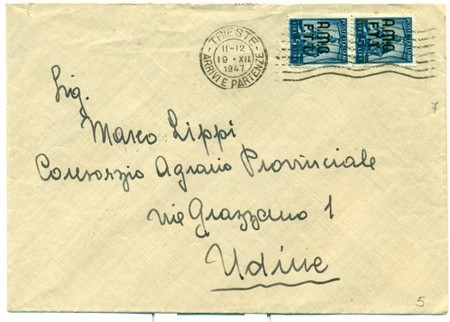 TRIESTE
11-12
19·XII
1947
ARRIVI E PARTENZE
AMG
FTT
AMG
FTT
Sig.
Marco Lippi
Consorzio Agrario Provinciale
via Grazzano 1
Udine
7
5